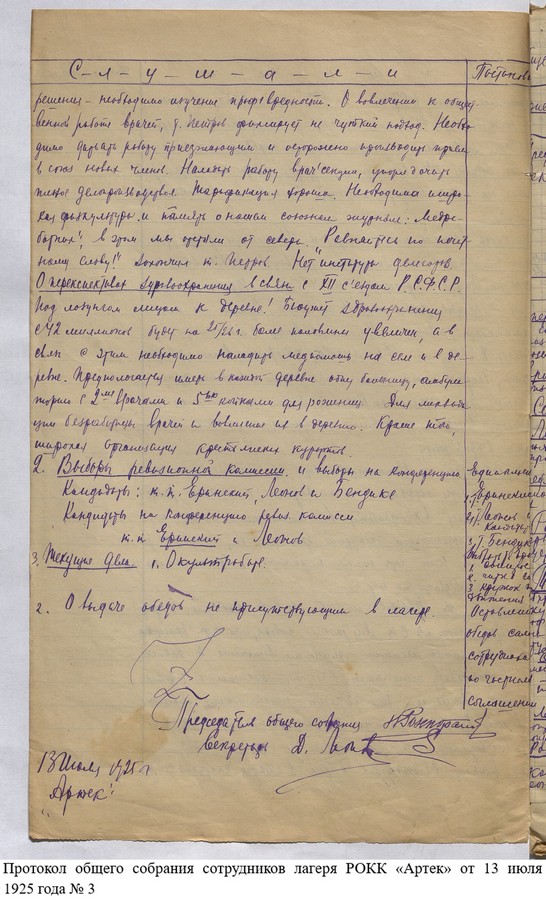 С-л-у-ш-а-л-и
решения - необходимо изучение профвредности. О вовлечении к общест-
венной работе врачей, т. Петров фиксирует не чуткий подход. Необхо-
димо давать работу приезжающим и осторожно производить прием
в союз новых членов. Наладить работу врач. секции, упорядочить
делопроизводство. Тарификация хороша. Необходима широ-
кая физкультура и память о нашем союзном журнале: „Медра-
ботник", в этом мы отстали от севера. „Равняйтесь по
слову!" закончил т. Петров. Нет института делегатов.
О перспективах здравоохранения в связи с XII съездом Р.С.Ф.С.Р.
Под лозунгом лицом к деревне! Бюджет здравоохранения
с 42 миллионов будет на 25/26 г. более половины увеличен, а в
связи с этим необходимо наладить медпомощь на селе и в де-
ревне. Предполагается иметь в каждой деревне одну больницу, амбула-
торию с 2мя врачами и 5ью койками для рожениц. Для ликвида-
ции безработицы врачей и вовлечение их в деревню. Кроме того,
широкая организация крестьянских курортов.
2. Выборы ревизионной комиссии и выборы на конференцию
Кандидаты: т.т. Евранский, Леонов и Бендике
Кандидаты на конференцию ревиз. комиссии
т.т. и Леонов
3. Текущие дела 1. О культработе.
2. О выдаче обедов не присутствующим в лагере.
Председатель общего собрания
Секретарь Д. Леонов
13 Июля 1925 г.
Артек
Постанов
2. т. Леонов
3. т. Бендик
Оставлению
обедов
сотрудника
по частном
соглашению
Протокол общего собрания сотрудников лагеря РОКК «Артек» от 13 июля
1925 года № 3